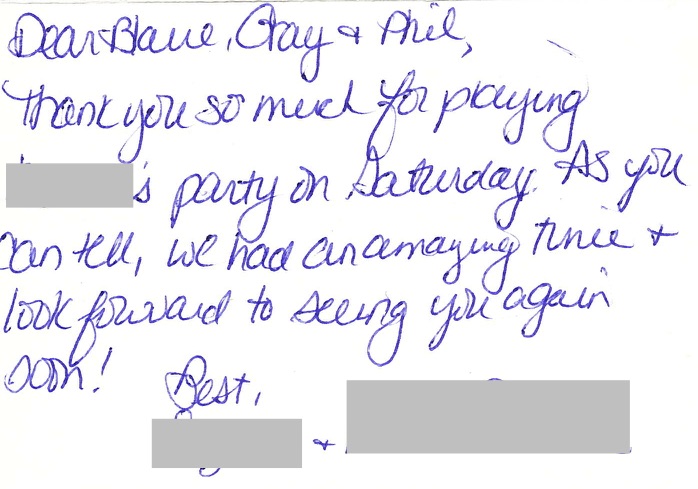 Dear Blane, Gray & Phil,
Thank you so much for playing
's party on Saturday. As you
can tell, we had an amazing time +
look forward to seeing you again
soon!
Best,
+